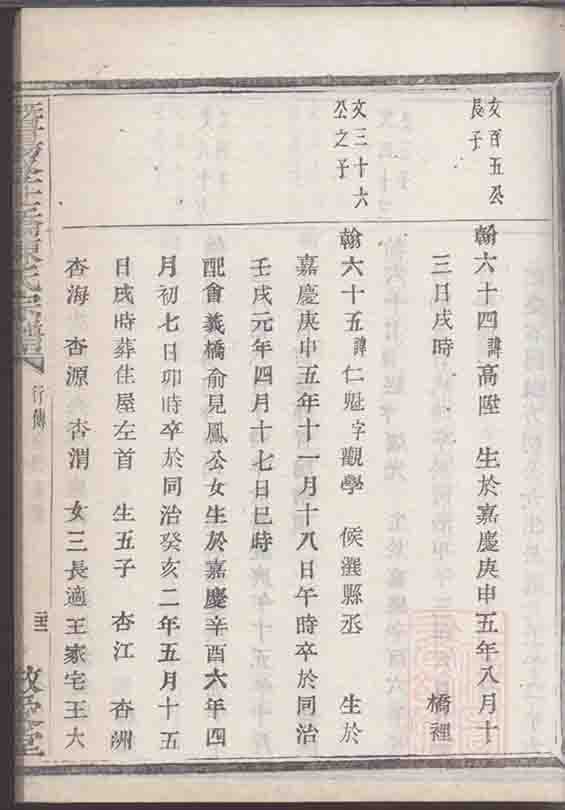 文百五公
長子
翰六十四諱高陞　生於嘉慶庚申五年八月十
三日戌時　橋裡
文三十六
公之子
翰六十五諱仁魁字觀學　候選縣丞　生於
嘉慶庚申五年十一月十八日午時卒於同治
壬戌元年四月十七日巳時
配會義橋俞見鳳公女生於嘉慶辛酉六年四
月初七日卯時卒於同治癸亥二年五月十五
日戌時葬住屋左首　生五子　杏江　杏洲
杏海　杏源　杏渭　女三長適王家宅王大
宗譜
行傳